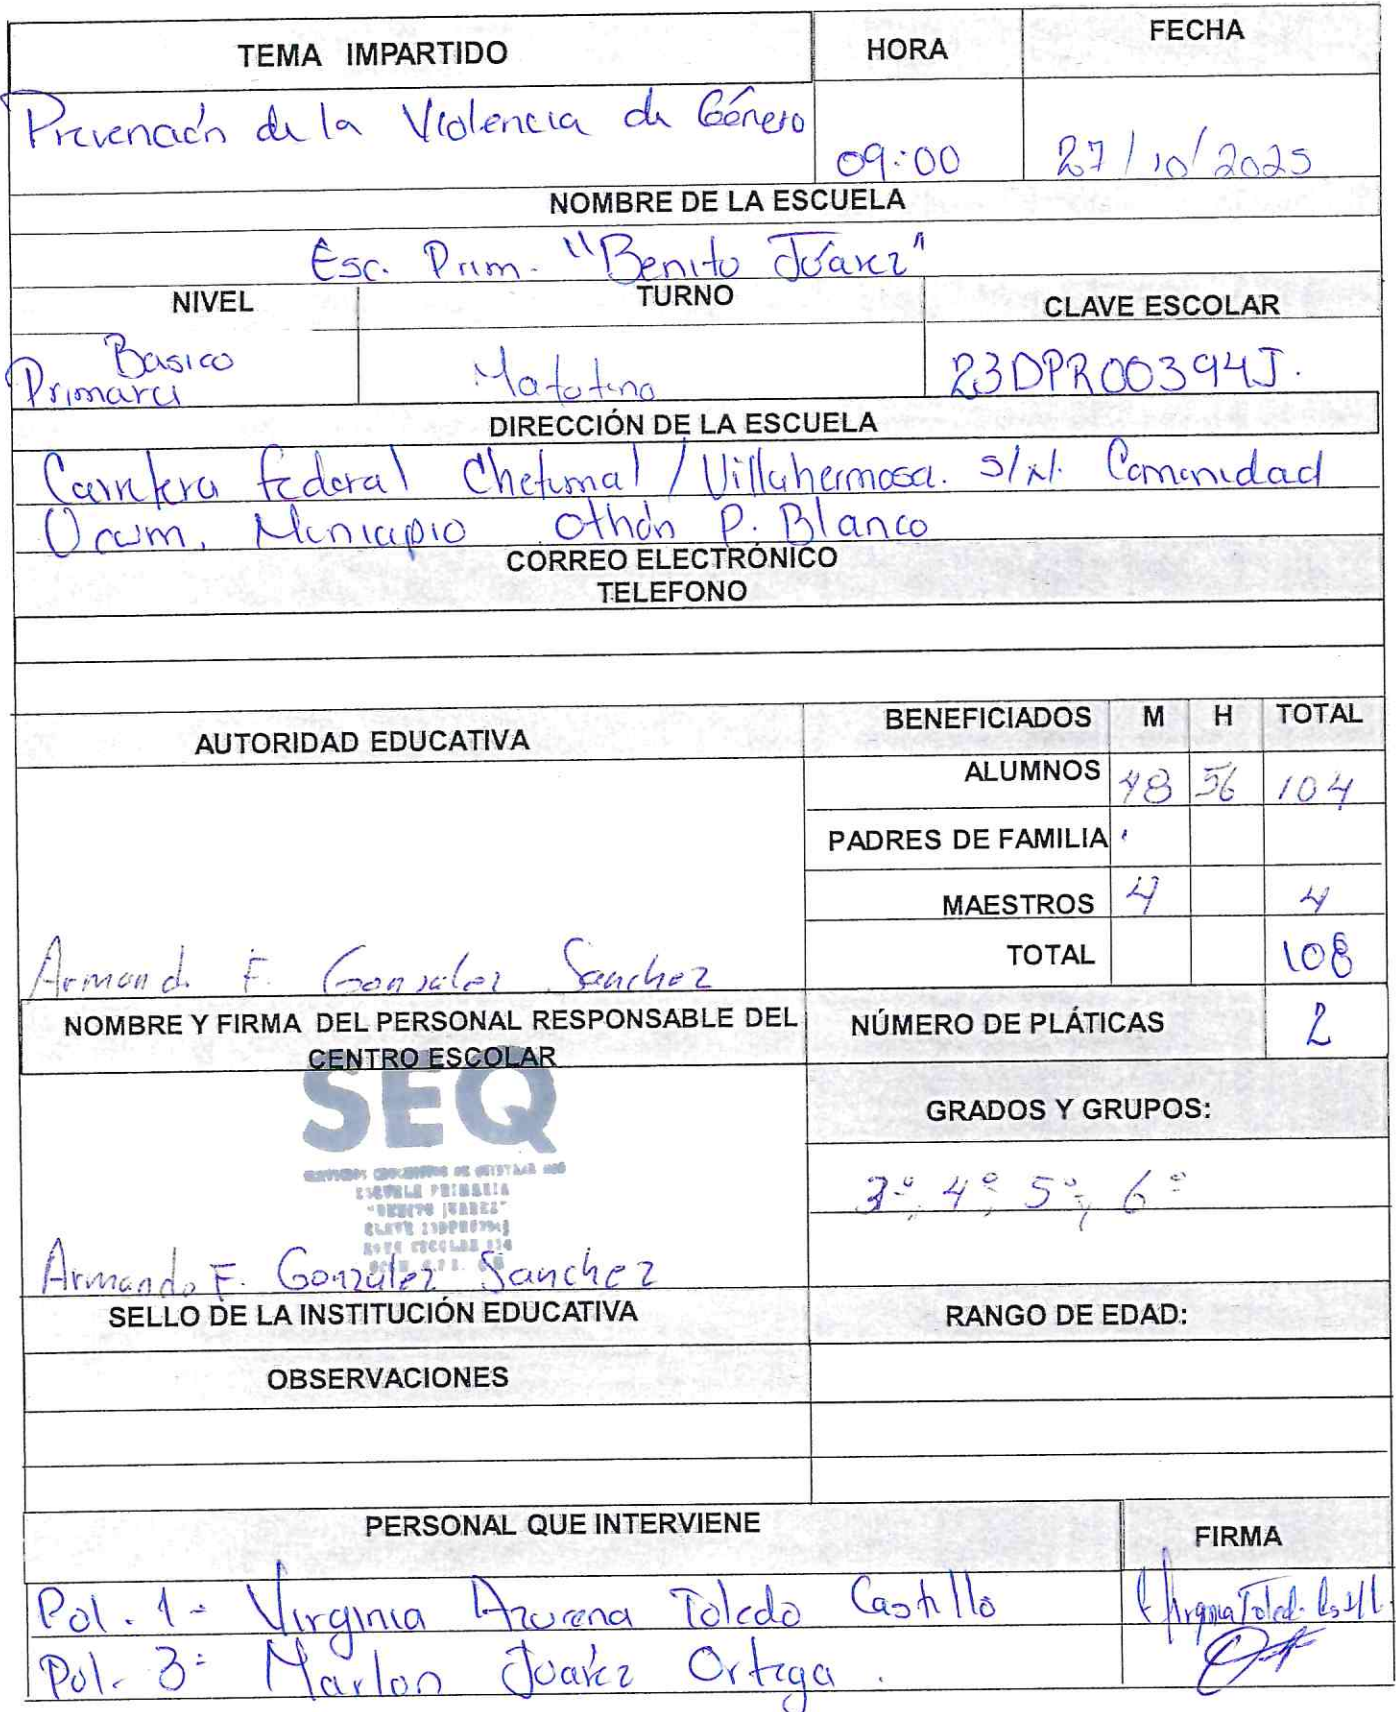 TEMA IMPARTIDO
HORA
FECHA
Prevención de la Violencia de Género
09:00
27/10/2025
NOMBRE DE LA ESCUELA
Esc. Prim. "Benito Juárez"
NIVEL
TURNO
CLAVE ESCOLAR
Basico
Primaria
Matutino
23DPR00394J.
DIRECCIÓN DE LA ESCUELA
Carretera federal Chetumal / Villahermosa. s/n. Comunidad
Ucum, Municipio Othón P. Blanco
CORREO ELECTRÓNICO
TELEFONO
AUTORIDAD EDUCATIVA
BENEFICIADOS M H TOTAL
ALUMNOS 48 56 104
PADRES DE FAMILIA
MAESTROS 4 4
TOTAL 108
Armando F. Gonzalez Sanchez
NOMBRE Y FIRMA DEL PERSONAL RESPONSABLE DEL
CENTRO ESCOLAR
NÚMERO DE PLÁTICAS 2
SEQ
ESCUELA PRIMARIA
"BENITO JUAREZ"
GRADOS Y GRUPOS:
3º, 4º, 5º, 6º
Armando F. Gonzalez Sanchez
SELLO DE LA INSTITUCIÓN EDUCATIVA
RANGO DE EDAD:
OBSERVACIONES
PERSONAL QUE INTERVIENE
FIRMA
Pol. 1º Virginia Azucena Toledo Castillo
Pol. 3º Marlon Juarez Ortega.